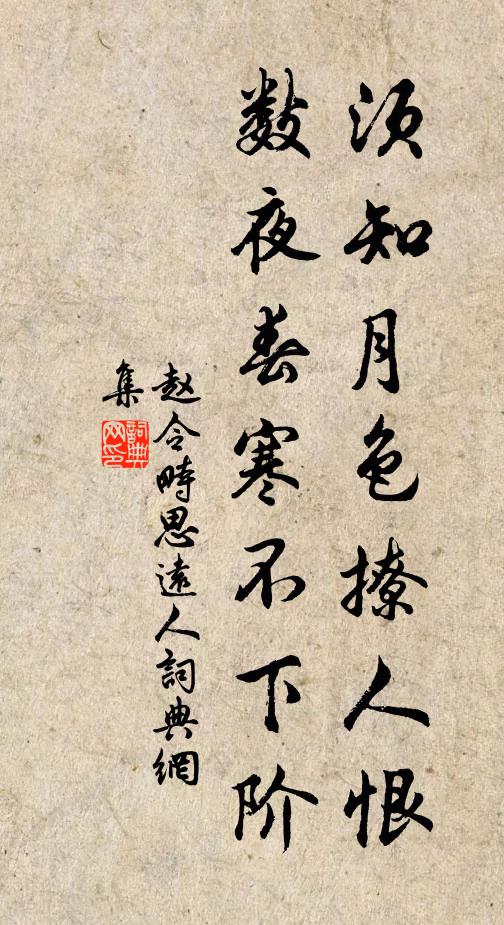 须知月色撩人恨
数夜春寒不下阶
赵令畤思遠人詞典網
集
詞典网印